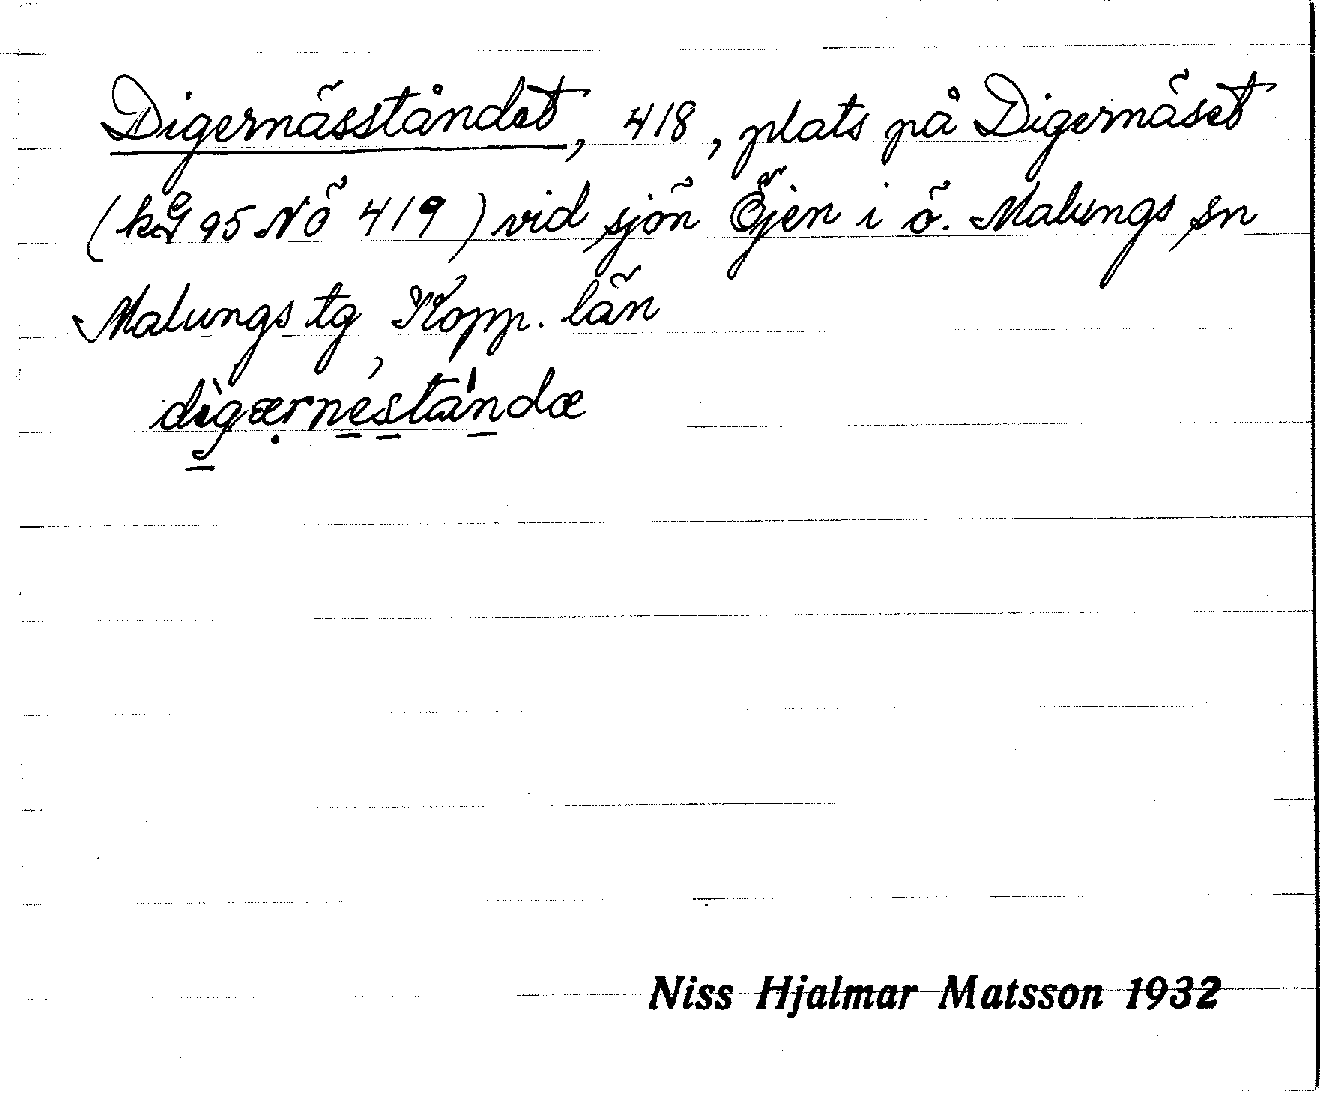 Digernäsståndet, 418, plats på Digernäset
(kG 95 NÖ 419) vid sjön Öjen i ö. Malungs sn
Malungs tg Kopp. län
digærneståndæ
Niss Hjalmar Matsson 1932